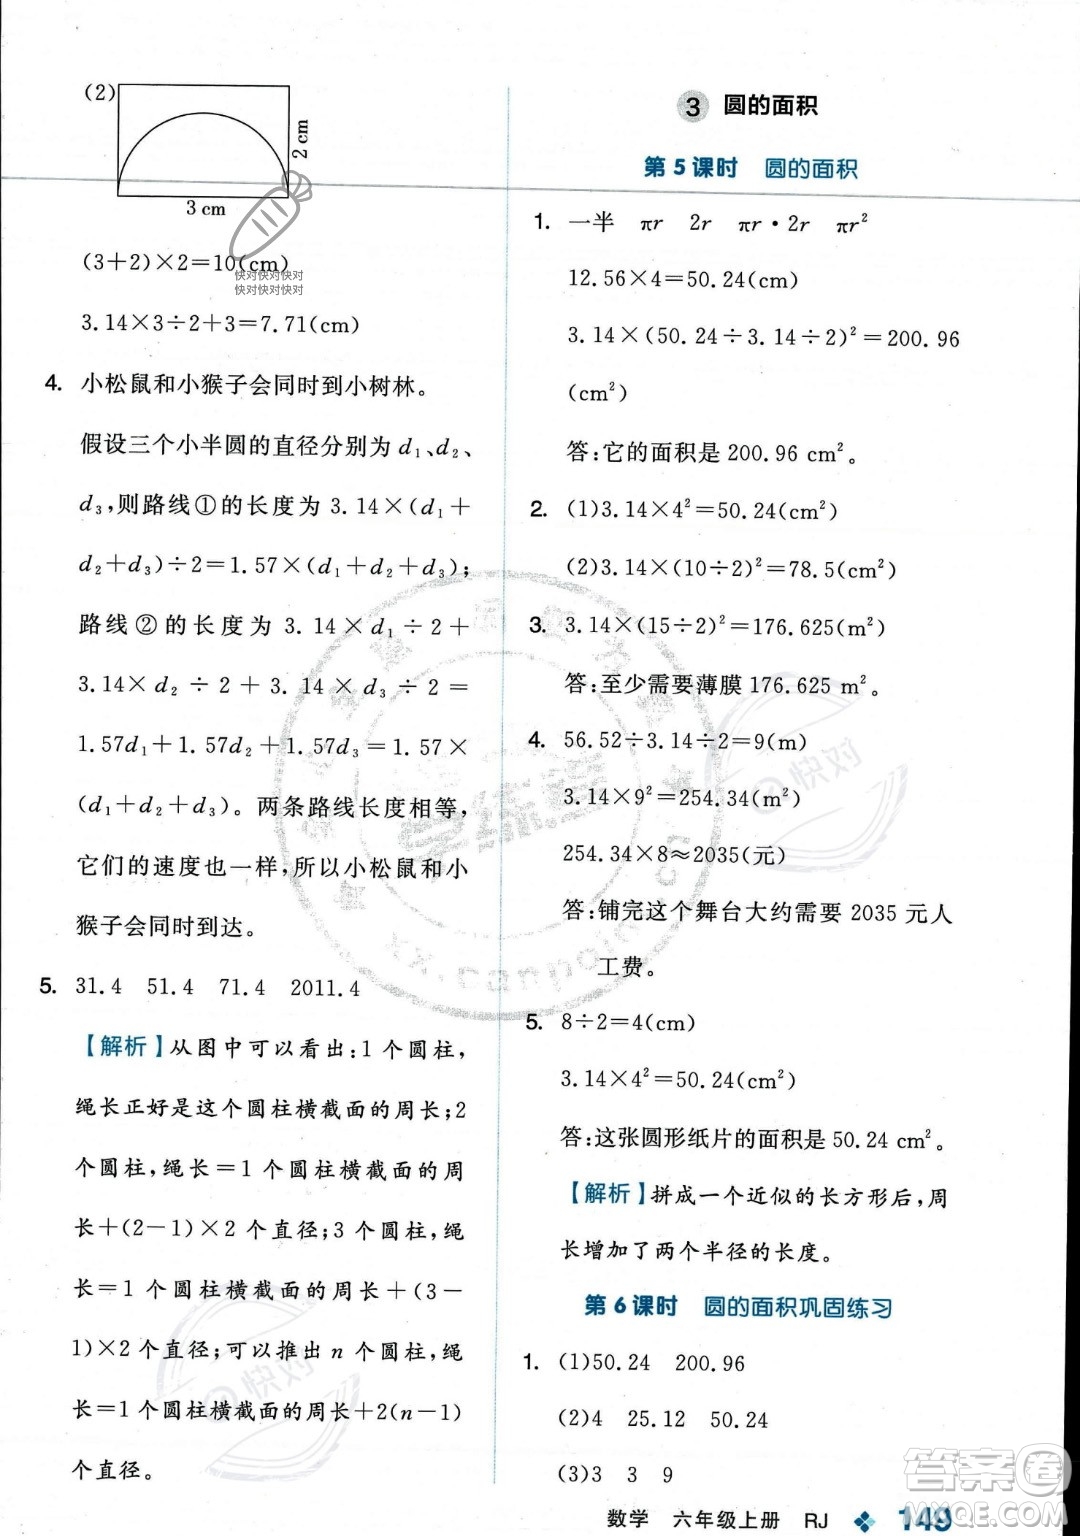 (2)
2 cm
3 cm
(3+2)×2=10(cm)
快对快对快对
快对快对快对
3.14×3÷2+3=7.71(cm)
4. 小松鼠和小猴子会同时到小树林。
假设三个小半圆的直径分别为 d₁、d₂、
d₃,则路线①的长度为 3.14×(d₁+
d₂+d₃)÷2=1.57×(d₁+d₂+d₃);
路线②的长度为 3.14×d₁÷2+
3.14×d₂÷2+3.14×d₃÷2=
1.57d₁+1.57d₂+1.57d₃=1.57×
(d₁+d₂+d₃)。两条路线长度相等,
它们的速度也一样,所以小松鼠和小
猴子会同时到达。
5. 31.4 51.4 71.4 2011.4
【解析】从图中可以看出:1 个圆柱,
绳长正好是这个圆柱横截面的周长;2
个圆柱,绳长=1 个圆柱横截面的周
长+(2-1)×2 个直径;3 个圆柱,绳
长=1 个圆柱横截面的周长+(3-
1)×2 个直径;可以推出 n 个圆柱,绳
长=1 个圆柱横截面的周长+2(n-1)
个直径。
3 圆的面积
第 5 课时 圆的面积
1. 一半 πr 2r πr·2r πr²
12.56×4=50.24(cm)
3.14×(50.24÷3.14÷2)²=200.96
(cm²)
答:它的面积是 200.96 cm²。
2. (1)3.14×4²=50.24(cm²)
(2)3.14×(10÷2)²=78.5(cm²)
3. 3.14×(15÷2)²=176.625(m²)
答:至少需要薄膜 176.625 m²。
4. 56.52÷3.14÷2=9(m)
3.14×9²=254.34(m²)
254.34×8≈2035(元)
答:铺完这个舞台大约需要 2035 元人
工费。
5. 8÷2=4(cm)
3.14×4²=50.24(cm²)
答:这张圆形纸片的面积是 50.24 cm²。
【解析】拼成一个近似的长方形后,周
长增加了两个半径的长度。
第 6 课时 圆的面积巩固练习
1. (1)50.24 200.96
(2)4 25.12 50.24
(3)3 3 9
数学 六年级上册 RJ 149
答案圈
MXQE.COM
@快对
@快对